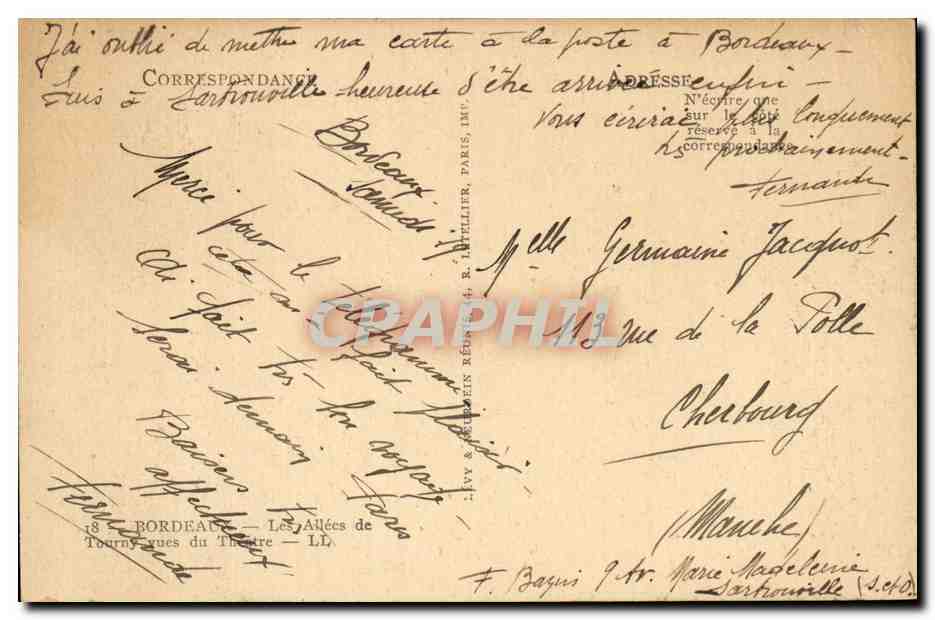 J'ai oublié de mettre ma carte à la poste à Bordeaux -
Suis à Sartrouville heureuse d'être arrivée enfin -
Vous écrirai plus longuement
prochainement -
Fernande
CORRESPONDANCE
ADRESSE
N'écrire que
sur le côté
réservé à la
correspondance
Bordeaux
Samedi
Merci pour le télégramme
cela m'a fait plaisir.
Ai fait très bon voyage -
Serai demain Paris
Baisers
affectueux
Fernande
LEVY & NEURDEIN RÉUNIS, 44, R. LETELLIER, PARIS, IMP.
Melle Germaine Jacquot
113 rue de la Polle
Cherbourg
(Manche)
F. Bazin 9 Av. Marie Madeleine
Sartrouville (S. et O.)
18 BORDEAUX — Les Allées de
Tourny vues du Théatre — LL
CPAPHIL